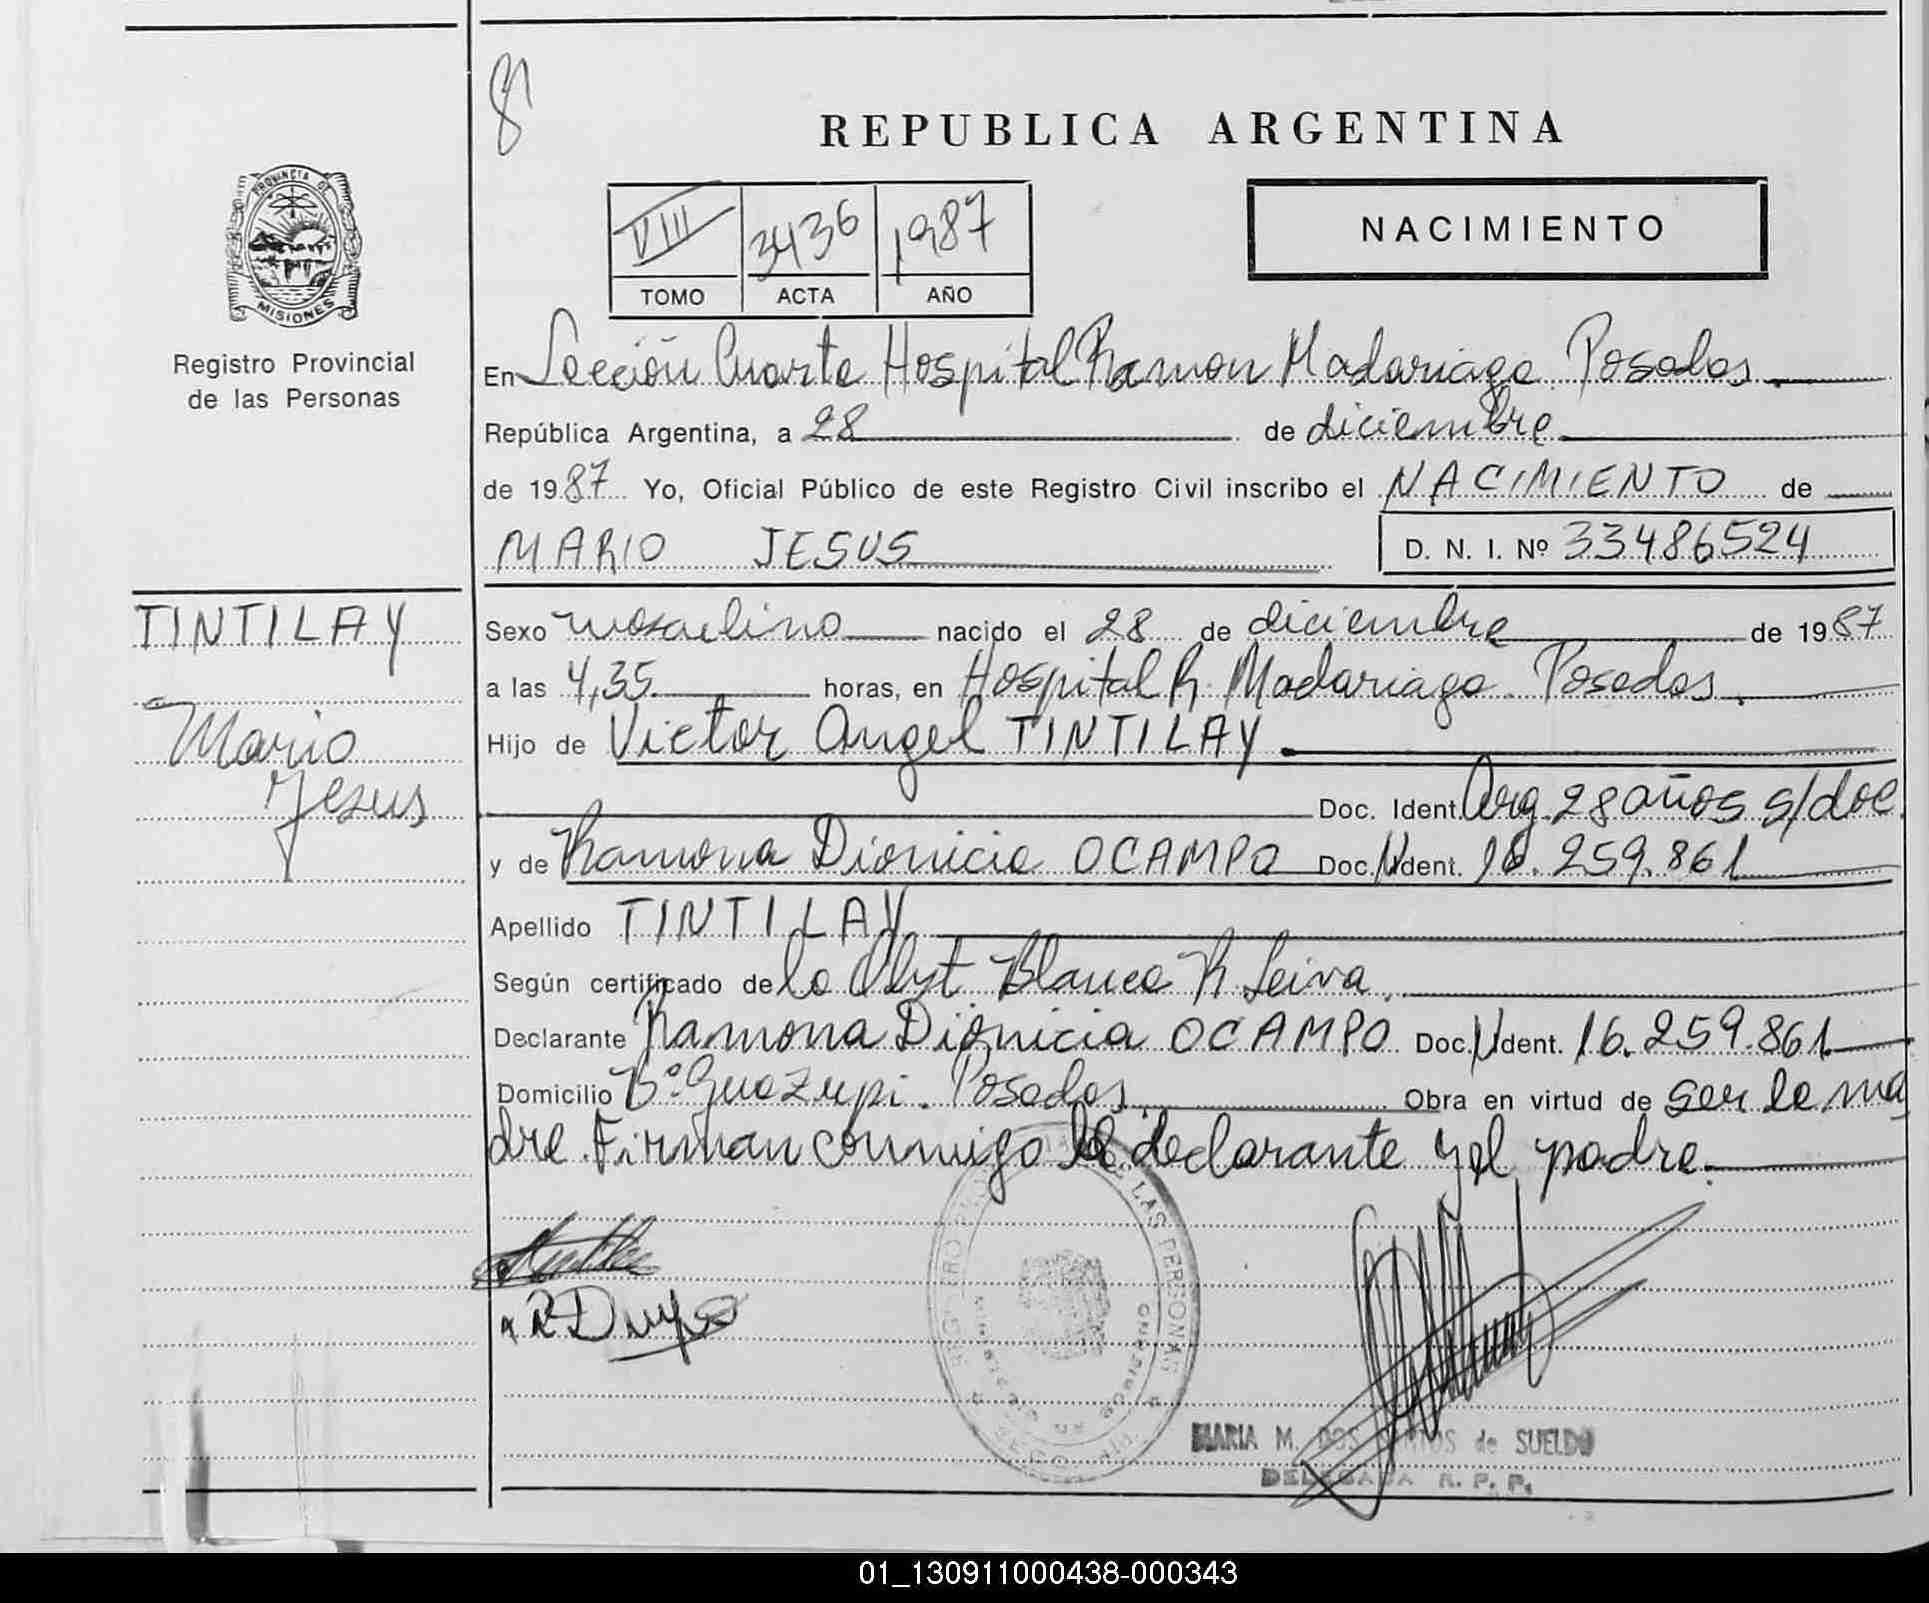 8
REPUBLICA ARGENTINA
PROVINCIA DE
MISIONES
VIII 3436 1987
TOMO ACTA AÑO
NACIMIENTO
Registro Provincial
de las Personas
En Sección Cuarta Hospital Ramon Madariaga Posadas
República Argentina, a 28 de diciembre
de 1987 Yo, Oficial Público de este Registro Civil inscribo el NACIMIENTO de
MARIO JESUS D. N. I. Nº 33486524
TINTILAY
Mario
Jesus
Sexo masculino nacido el 28 de diciembre de 1987
a las 4,35 horas, en Hospital R. Madariaga Posadas.
Hijo de Victor Angel TINTILAY
Doc. Ident. Arg. 28 años s/doc.
y de Ramona Dionicia OCAMPO Doc. Ident. 16.259.861
Apellido TINTILAY
Según certificado de la Obst Blanca R Leiva.
Declarante Ramona Dionicia OCAMPO Doc. Ident. 16.259.861
Domicilio Bº Guazupi. Posadas. Obra en virtud de ser la ma
dre. Firman conmigo la declarante y el padre.
LAS PERSONAS
MARIA M. DOS SANTOS de SUELDO
DELEGADA R. P. P.
01_130911000438-000343